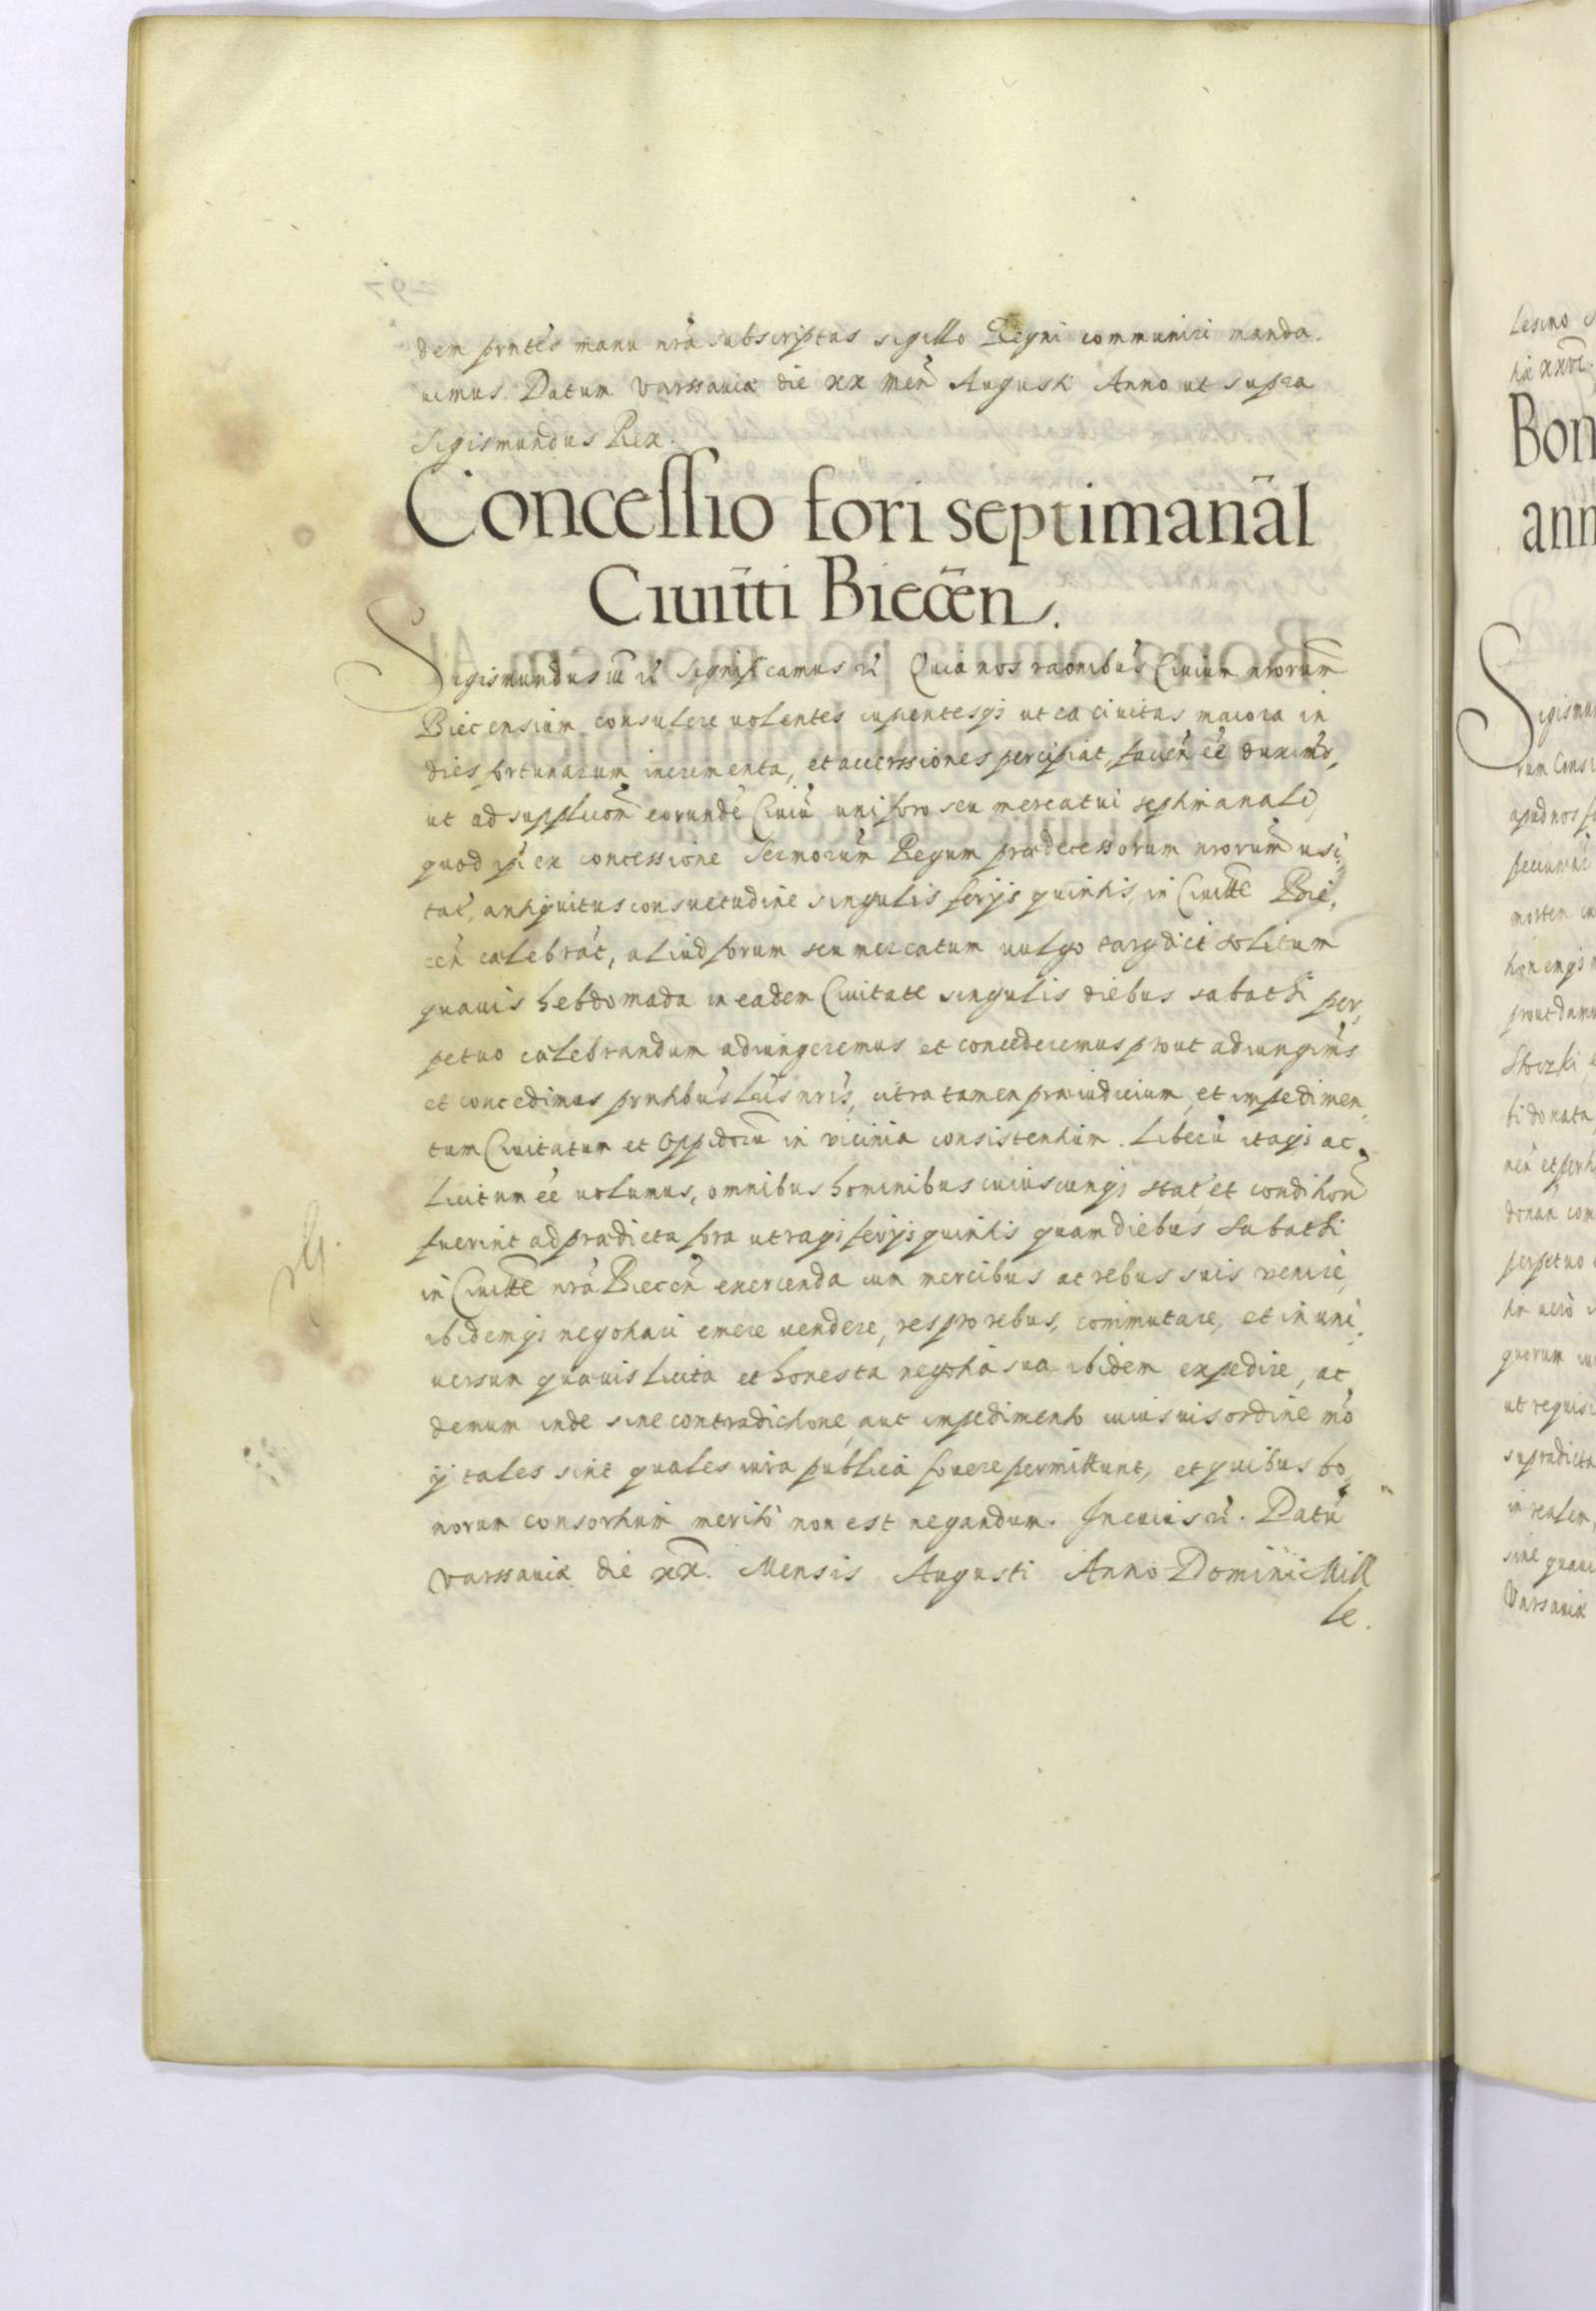 dem prntes manu nrã subscriptas sigillo Regni communiri manda.
uimus. Datum Varssauiæ die xx men̄ Augusti Anno ut supra
Sigismundus Rex.
Concessio fori septimanāl
Ciuitti Biecēn.
Sigismundus iii rc̄ Significamus rc̄ Quia nos raõnibus Ciuium nrorum
Biecensium consulere uolentes cupientesqȝ ut ea ciuitas maiora in
dies fortunarum incrementa, et accessiones percipiat, faciēn ēē duximus,
ut ad supplicõm eorundē Ciuiū uni foro seu mercatui septimanali,
quod ipi ex concessione Sermorum Regum prædecessorum nrorum usi,
tat, antiquitus consuetudine singulis ferijs quintis, in Ciuitte Bie,
cēn celebrāt, aliud forum seu mercatum uulgo targ dici solitum
quauis hebdomada in eadem Ciuitate singulis diebus sabathi per,
petuo celebrandum adiungeremus et concederemus prout adiungims
et concedimus prntibus Lris nris, citra tamen præiudicium, et impedimen,
tum Ciuitatum et Oppidorū in vicinia consistentium. Liberū itaqȝ ac
licitum ēē uolumus, omnibus hominibus cuiuscunqȝ stat et condition
fuerint ad prædicta fora utraqȝ ferijs quintis quam diebus Sabathi
in Ciuitte nrã Biecēn exercenda cum mercibus ac rebus suis venire,
ibidemqȝ negotiari emere uendere, res pro rebus, commutare, et in uni,
uersum quæuis licita et honesta negotia sua ibidem expedire, ac
demum inde sine contradictione, aut impedimento cuiusuis ordine mõ
ij tales sint quales iura publica fouere permittunt, et quibus bo,
norum consortium merito non est negandum. In cuius rc̄. Datū
Varssauiæ die xx. Mensis Augusti Anno Domini Mill
le.